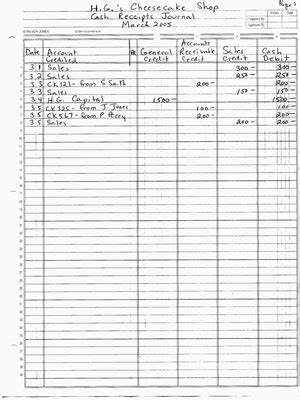 H.G.'s Cheesecake Shop
Page 1
Cash Receipts Journal
March 2005
WILSON JONES
Date Account Credited PR General Credit Accounts Receivable Credit Sales Credit Cash Debit
3 1 Sales 300- 300-
3 2 Sales 250- 250-
3 3 CK121- from S Smith 200- 200-
3 3 Sales 150- 150-
3 4 H.G. Capital 1500- 1500-
3 5 CK325- from J. Jones 100- 100-
3 5 CK567- from P. Perry 200- 200-
3 5 Sales 200- 200-